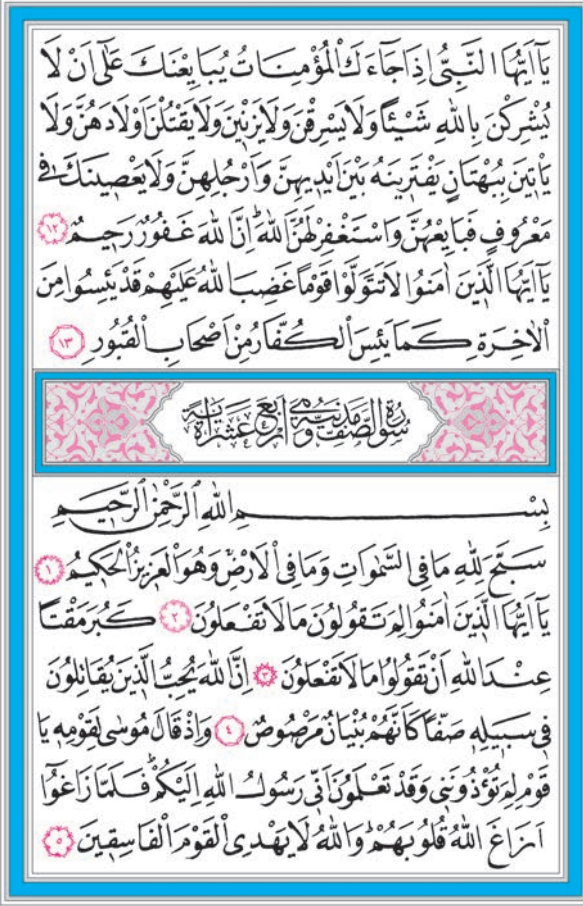 يَٓا اَيُّهَا النَّبِيُّ اِذَا جَٓاءَكَ الْمُؤْمِنَاتُ يُبَايِعْنَكَ عَلٰٓى اَنْ لَا
يُشْرِكْنَ بِاللّٰهِ شَيْـًٔا وَلَا يَسْرِقْنَ وَلَا يَزْنٖينَ وَلَا يَقْتُلْنَ اَوْلَادَهُنَّ وَلَا
يَأْتٖينَ بِبُهْتَانٍ يَفْتَرٖينَهُ بَيْنَ اَيْدٖيهِنَّ وَاَرْجُلِهِنَّ وَلَا يَعْصٖينَكَ فٖي
مَعْرُوفٍ فَبَايِعْهُنَّ وَاسْتَغْفِرْ لَهُنَّ اللّٰهَؕ اِنَّ اللّٰهَ غَفُورٌ رَحٖيمٌ ﴿١٢﴾
يَٓا اَيُّهَا الَّذٖينَ اٰمَنُوا لَا تَتَوَلَّوْا قَوْمًا غَضِبَ اللّٰهُ عَلَيْهِمْ قَدْ يَئِسُوا مِنَ
الْاٰخِرَةِ كَمَا يَئِسَ الْكُفَّارُ مِنْ اَصْحَابِ الْقُبُورِ ﴿١٣﴾
سُورَةُ الصَّفِّ مَدَنِيَّةٌ وَهِيَ اَرْبَعَ عَشْرَةَ اٰيَةً
بِسْمِ اللّٰهِ الرَّحْمٰنِ الرَّحٖيمِ
سَبَّحَ لِلّٰهِ مَا فِي السَّمٰوَاتِ وَمَا فِي الْاَرْضِۚ وَهُوَ الْعَزٖيزُ الْحَكٖيمُ ﴿١﴾
يَٓا اَيُّهَا الَّذٖينَ اٰمَنُوا لِمَ تَقُولُونَ مَا لَا تَفْعَلُونَ ﴿٢﴾ كَبُرَ مَقْتًا
عِنْدَ اللّٰهِ اَنْ تَقُولُوا مَا لَا تَفْعَلُونَ ﴿٣﴾ اِنَّ اللّٰهَ يُحِبُّ الَّذٖينَ يُقَاتِلُونَ
فٖي سَبٖيلِهٖ صَفًّا كَاَنَّهُمْ بُنْيَانٌ مَرْصُوصٌ ﴿٤﴾ وَاِذْ قَالَ مُوسٰى لِقَوْمِهٖ يَا
قَوْمِ لِمَ تُؤْذُونَنٖي وَقَدْ تَعْلَمُونَ اَنّٖي رَسُولُ اللّٰهِ اِلَيْكُمْؕ فَلَمَّا زَاغُٓوا
اَزَاغَ اللّٰهُ قُلُوبَهُمْؕ وَاللّٰهُ لَا يَهْدِي الْقَوْمَ الْفَاسِقٖينَ ﴿٥﴾